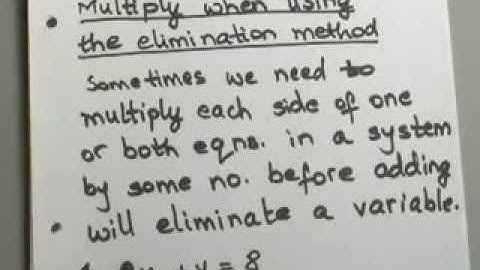 • Multiply when using
the elimination method
Sometimes we need to
multiply each side of one
or both eqns. in a system
by some no. before adding
• will eliminate a variable.
y = 8